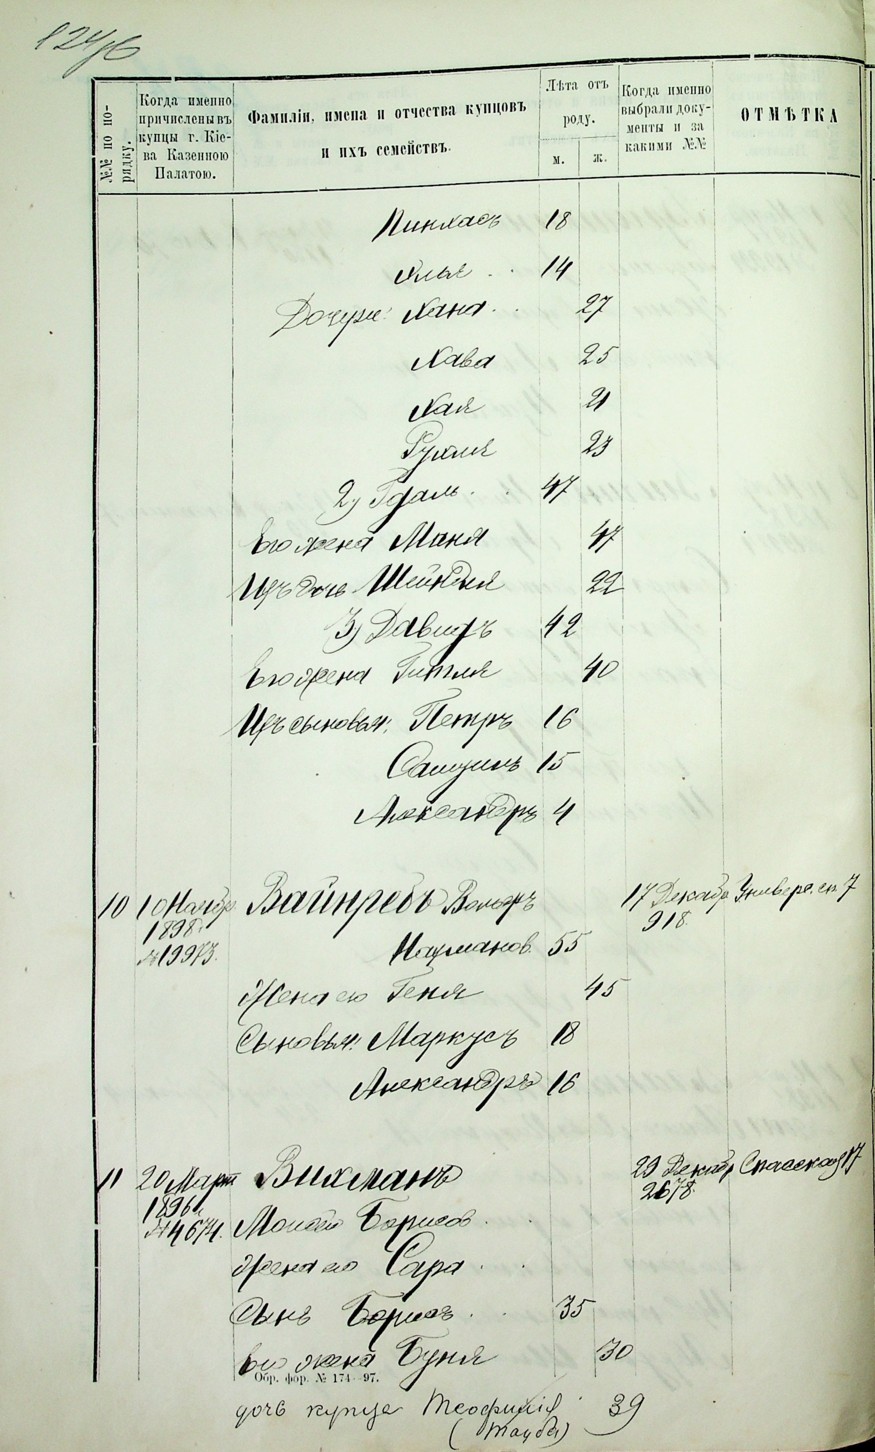 124/6
№№ по порядку.
Когда именно причислены въ купцы г. Кіева Казенною Палатою.
Фамиліи, имена и отчества купцовъ и ихъ семействъ.
Лѣта отъ роду.
м. ж.
Когда именно выбрали документы и за какими №№
ОТМѢТКА
Пинхасъ 18
Илья 14
Дочери: Хана 27
Хава 25
Хая 21
Рухля 23
2) Гдаль 47
Его жена Маня 47
Ихъ дочь Шейндля 22
3) Давидъ 42
Его жена Гитля 40
Ихъ сыновья: Петръ 16
Самуилъ 15
Александръ 4
10 10 Ноябр. Вайнребъ Вольфъ 17 Декабр. Универс. ст. 7
1898 г. 918.
№ 19973. Наумановъ 55
Жена его Геня 45
Сыновья: Маркусъ 18
Александръ 16
11 20 Март Вихманъ 29 Декабр Спасская 17
1896 г. 2678.
№ 4674. Моисей Борисов.
Жена его Сара
Сынъ Борисъ 35
Его жена Буня 30
Обр. фор. № 174—97.
дочь купца Теофилія 39
(Тауба)